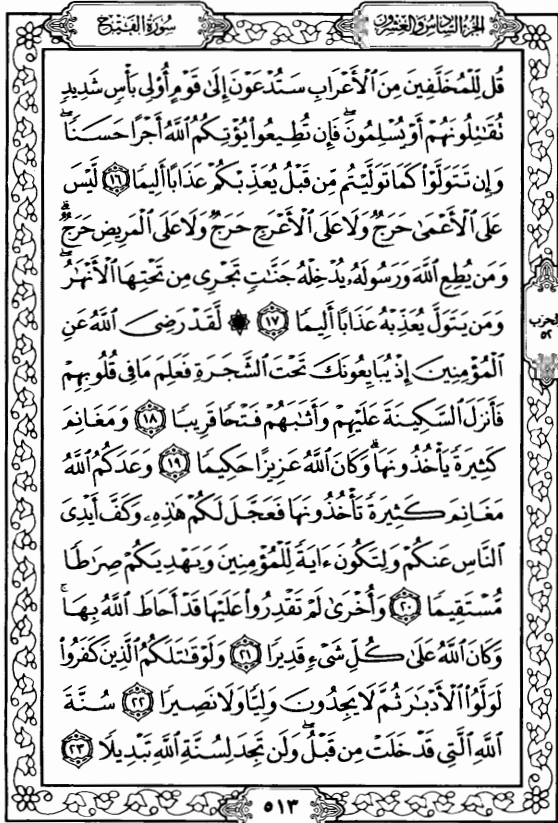 الجزء السادس والعشرون
سورة الفتح
قُل لِّلْمُخَلَّفِينَ مِنَ ٱلْأَعْرَابِ سَتُدْعَوْنَ إِلَىٰ قَوْمٍ أُو۟لِى بَأْسٍ شَدِيدٍ
تُقَـٰتِلُونَهُمْ أَوْ يُسْلِمُونَ ۖ فَإِن تُطِيعُوا۟ يُؤْتِكُمُ ٱللَّهُ أَجْرًا حَسَنًا ۖ
وَإِن تَتَوَلَّوْا۟ كَمَا تَوَلَّيْتُم مِّن قَبْلُ يُعَذِّبْكُمْ عَذَابًا أَلِيمًا ١٦ لَّيْسَ
عَلَى ٱلْأَعْمَىٰ حَرَجٌ وَلَا عَلَى ٱلْأَعْرَجِ حَرَجٌ وَلَا عَلَى ٱلْمَرِيضِ حَرَجٌ ۗ
وَمَن يُطِعِ ٱللَّهَ وَرَسُولَهُۥ يُدْخِلْهُ جَنَّـٰتٍ تَجْرِى مِن تَحْتِهَا ٱلْأَنْهَـٰرُ ۖ
وَمَن يَتَوَلَّ يُعَذِّبْهُ عَذَابًا أَلِيمًا ١٧ ۞ لَّقَدْ رَضِىَ ٱللَّهُ عَنِ
ٱلْمُؤْمِنِينَ إِذْ يُبَايِعُونَكَ تَحْتَ ٱلشَّجَرَةِ فَعَلِمَ مَا فِى قُلُوبِهِمْ
فَأَنزَلَ ٱلسَّكِينَةَ عَلَيْهِمْ وَأَثَـٰبَهُمْ فَتْحًا قَرِيبًا ١٨ وَمَغَانِمَ
كَثِيرَةً يَأْخُذُونَهَا ۗ وَكَانَ ٱللَّهُ عَزِيزًا حَكِيمًا ١٩ وَعَدَكُمُ ٱللَّهُ
مَغَانِمَ كَثِيرَةً تَأْخُذُونَهَا فَعَجَّلَ لَكُمْ هَـٰذِهِۦ وَكَفَّ أَيْدِىَ
ٱلنَّاسِ عَنكُمْ وَلِتَكُونَ ءَايَةً لِّلْمُؤْمِنِينَ وَيَهْدِيَكُمْ صِرَٰطًا
مُّسْتَقِيمًا ٢٠ وَأُخْرَىٰ لَمْ تَقْدِرُوا۟ عَلَيْهَا قَدْ أَحَاطَ ٱللَّهُ بِهَا ۚ
وَكَانَ ٱللَّهُ عَلَىٰ كُلِّ شَىْءٍ قَدِيرًا ٢١ وَلَوْ قَـٰتَلَكُمُ ٱلَّذِينَ كَفَرُوا۟
لَوَلَّوُا۟ ٱلْأَدْبَـٰرَ ثُمَّ لَا يَجِدُونَ وَلِيًّا وَلَا نَصِيرًا ٢٢ سُنَّةَ
ٱللَّهِ ٱلَّتِى قَدْ خَلَتْ مِن قَبْلُ ۖ وَلَن تَجِدَ لِسُنَّةِ ٱللَّهِ تَبْدِيلًا ٢٣
الحزب
٥٢
٥١٣